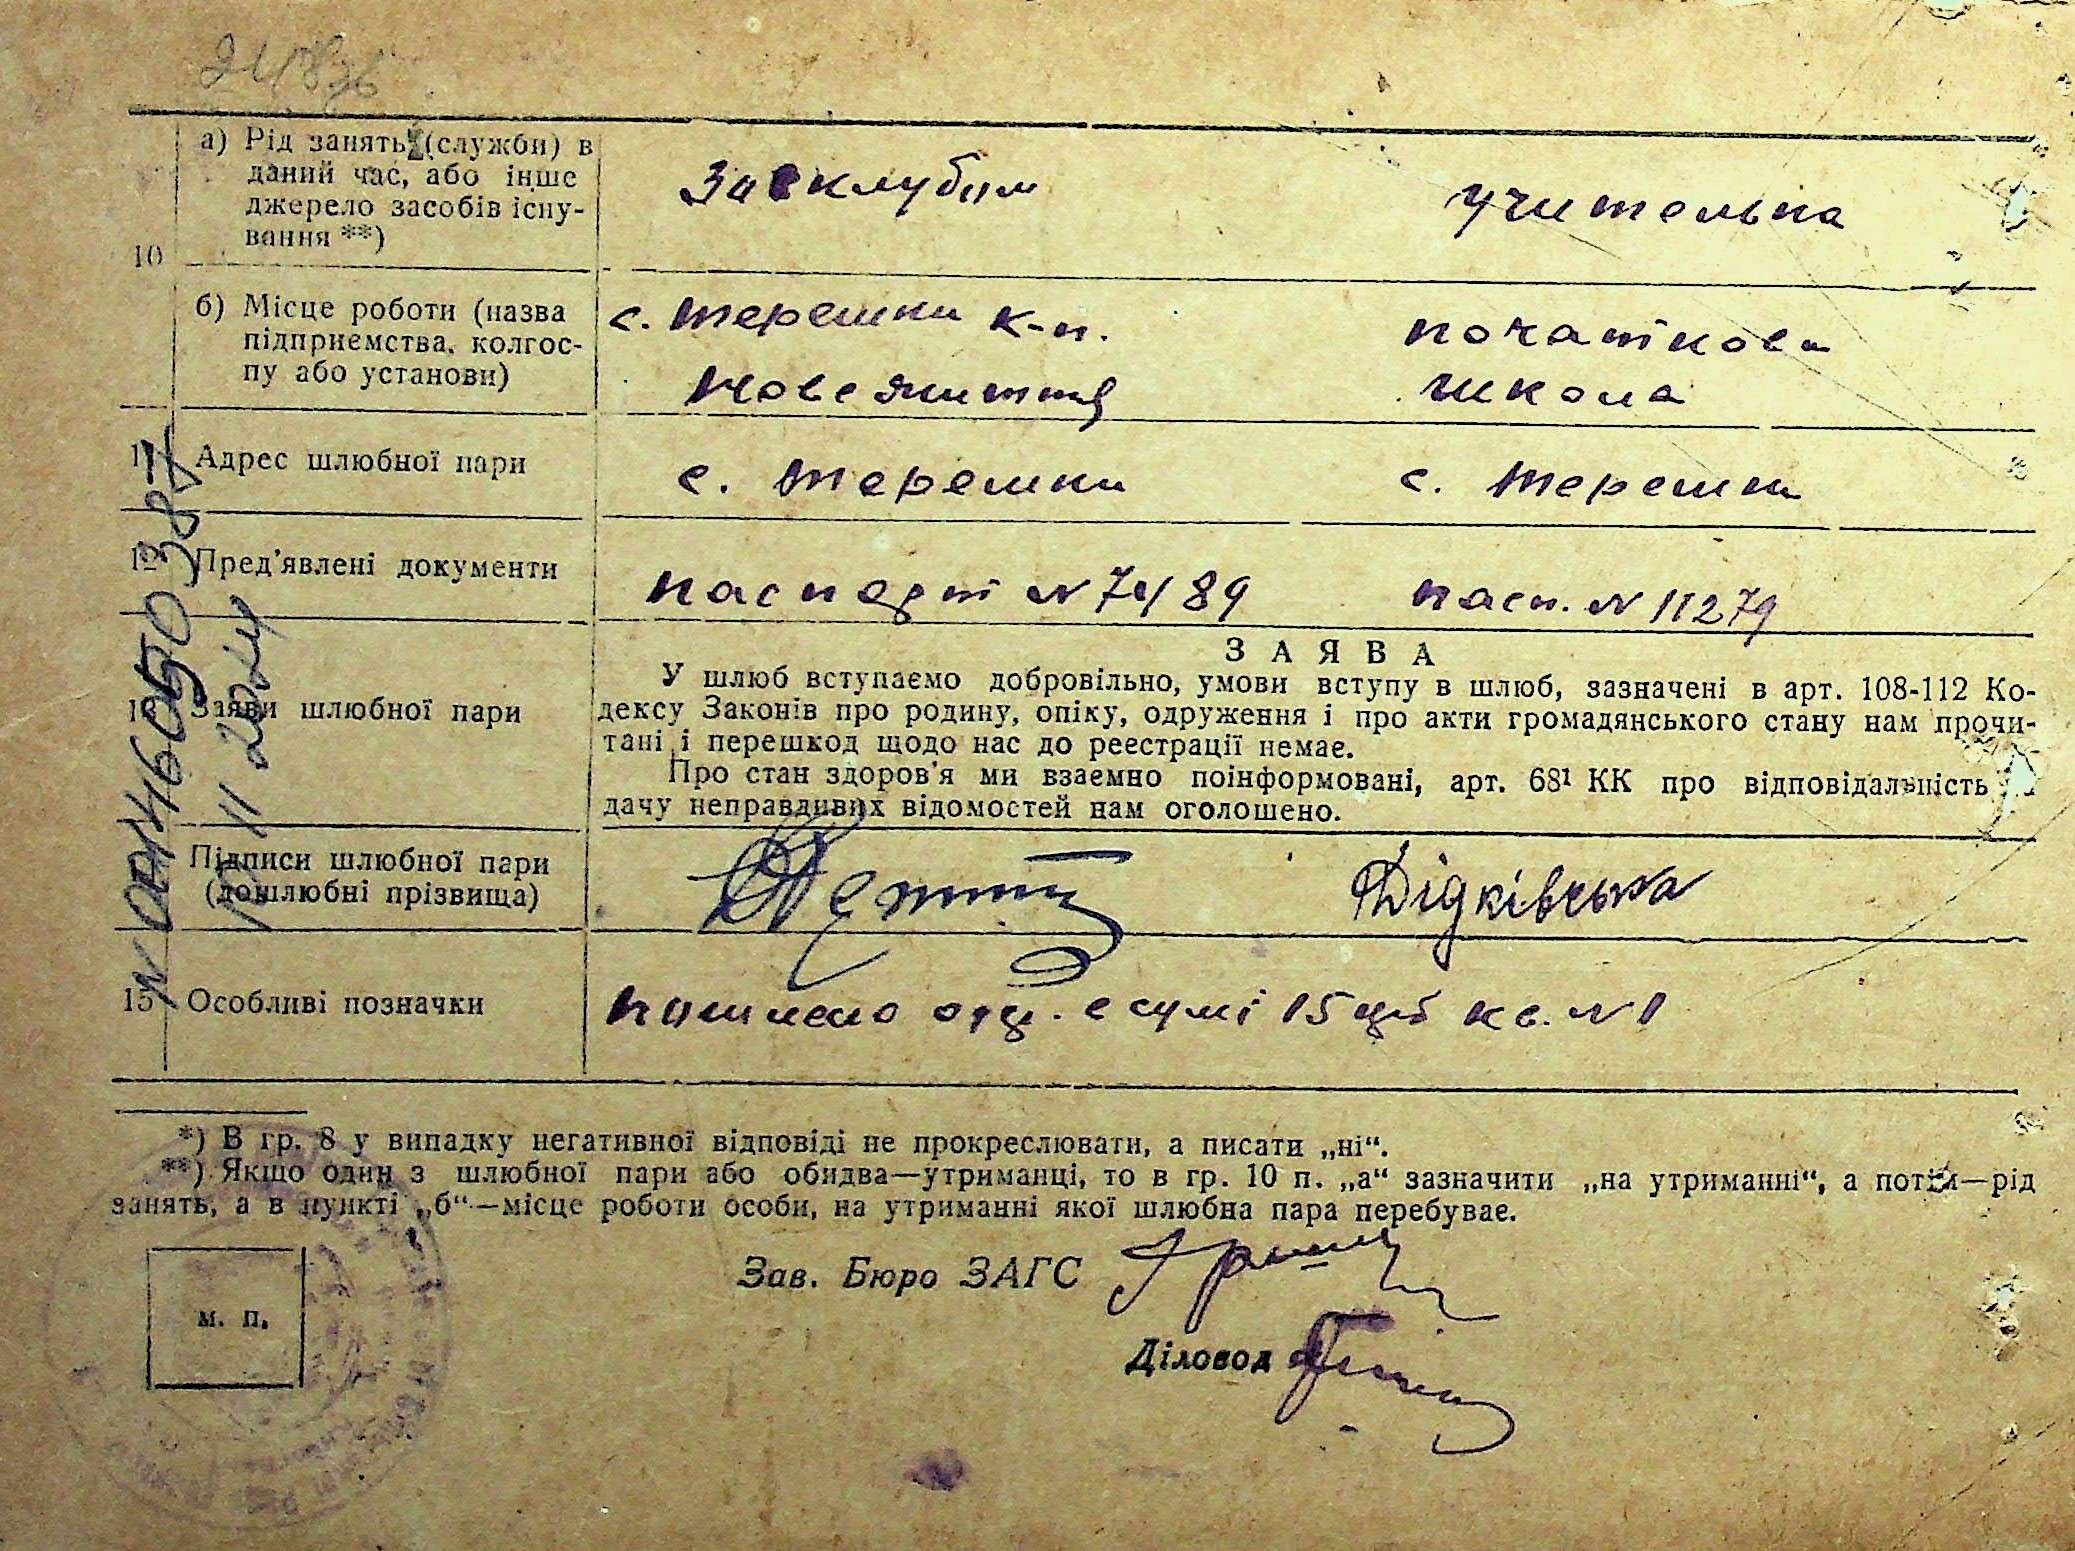 10
а) Рід занять (служби) в
даний час, або інше
джерело засобів існу-
вання **)
Завклубом
учителька
б) Місце роботи (назва
підприємства, колгос-
пу або установи)
с. Терешки к-п.
Нове життя
початкова
школа
Адрес шлюбної пари
с. Терешки
с. Терешки
12 Пред'явлені документи
паспорт №
пасп. № 11279
Заяви шлюбної пари
ЗАЯВА
У шлюб вступаємо добровільно, умови вступу в шлюб, зазначені в арт. 108-112 Ко-
дексу Законів про родину, опіку, одруження і про акти громадянського стану нам прочи-
тані і перешкод щодо нас до реєстрації немає.
Про стан здоров'я ми взаємно поінформовані, арт. 68¹ КК про відповідальність
дачу неправдивих відомостей нам оголошено.
Підписи шлюбної пари
(дошлюбні прізвища)
Дідківська
15 Особливі позначки
в сумі 15 руб кв. №1
*) В гр. 8 у випадку негативної відповіді не прокреслювати, а писати „ні“.
**) Якщо один з шлюбної пари або обидва—утриманці, то в гр. 10 п. „а“ зазначити „на утриманні“, а потім—рід
занять, а в пункті „б“—місце роботи особи, на утриманні якої шлюбна пара перебуває.
м. п.
Зав. Бюро ЗАГС
Діловод